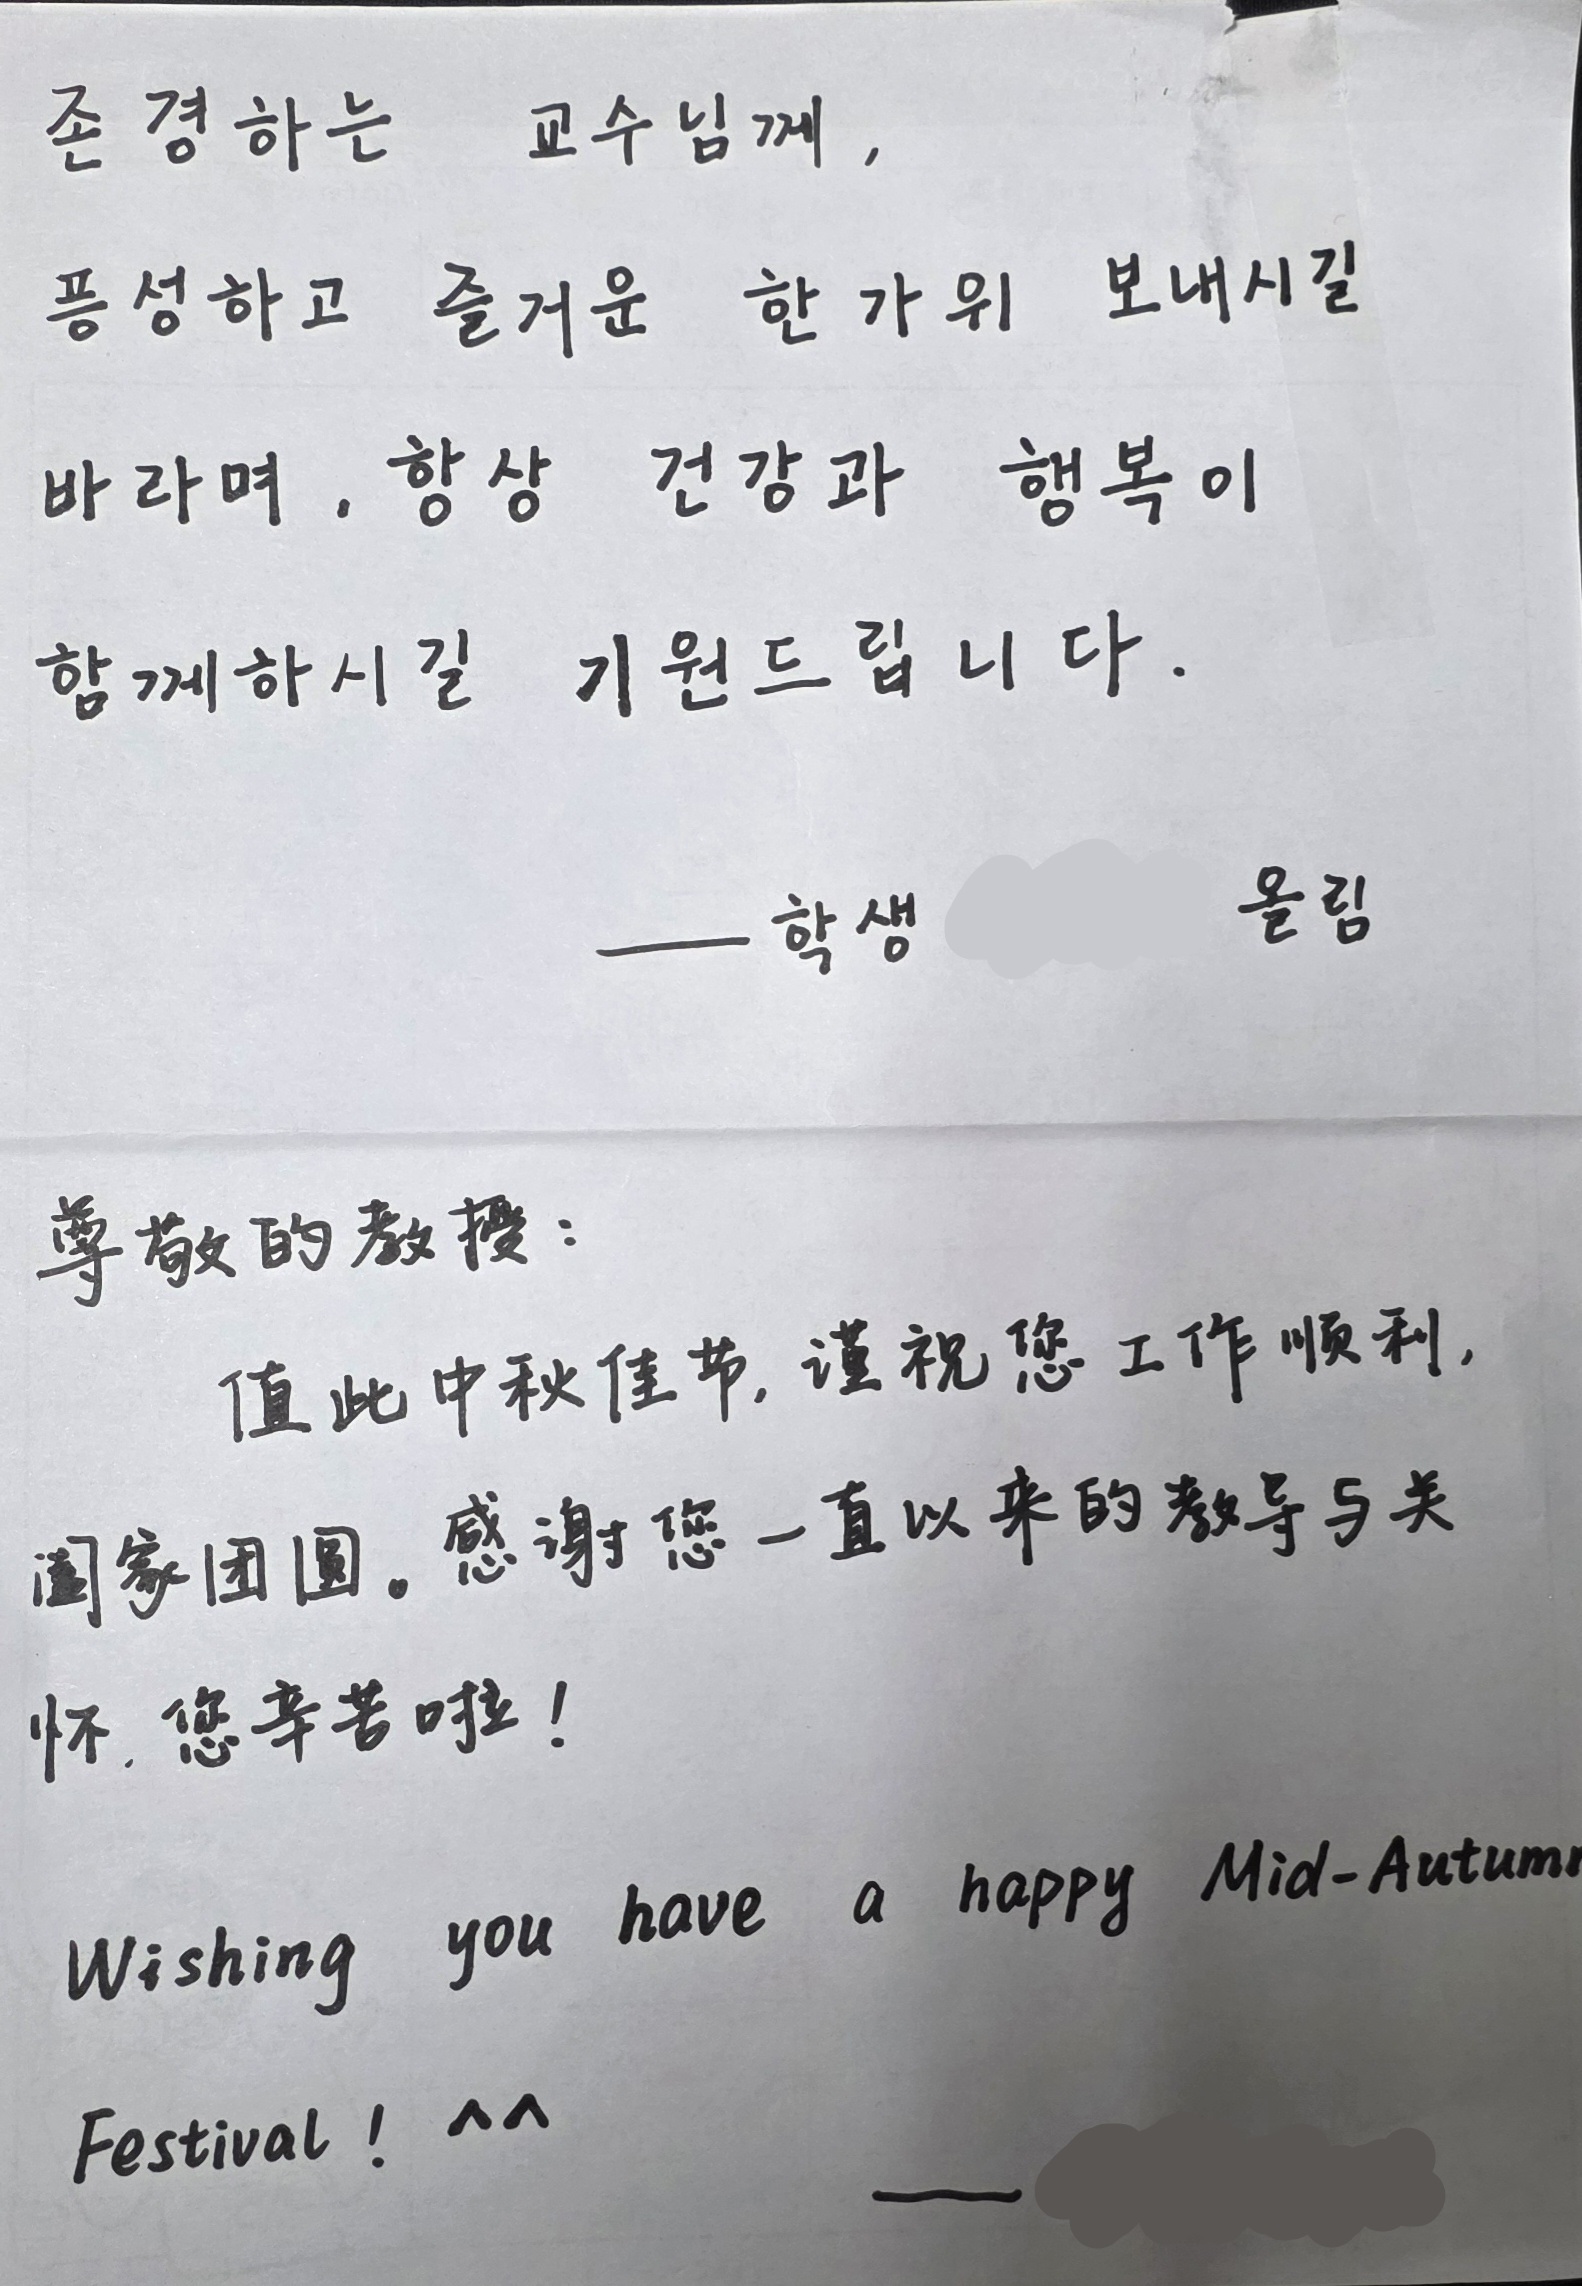 존경하는 교수님께,
풍성하고 즐거운 한가위 보내시길
바라며, 항상 건강과 행복이
함께하시길 기원드립니다.
——학생 올림
尊敬的教授:
值此中秋佳节,谨祝您工作顺利,
阖家团圆。感谢您一直以来的教导与关
怀,您辛苦啦!
Wishing you have a happy Mid-Autumn
Festival! ^^
——